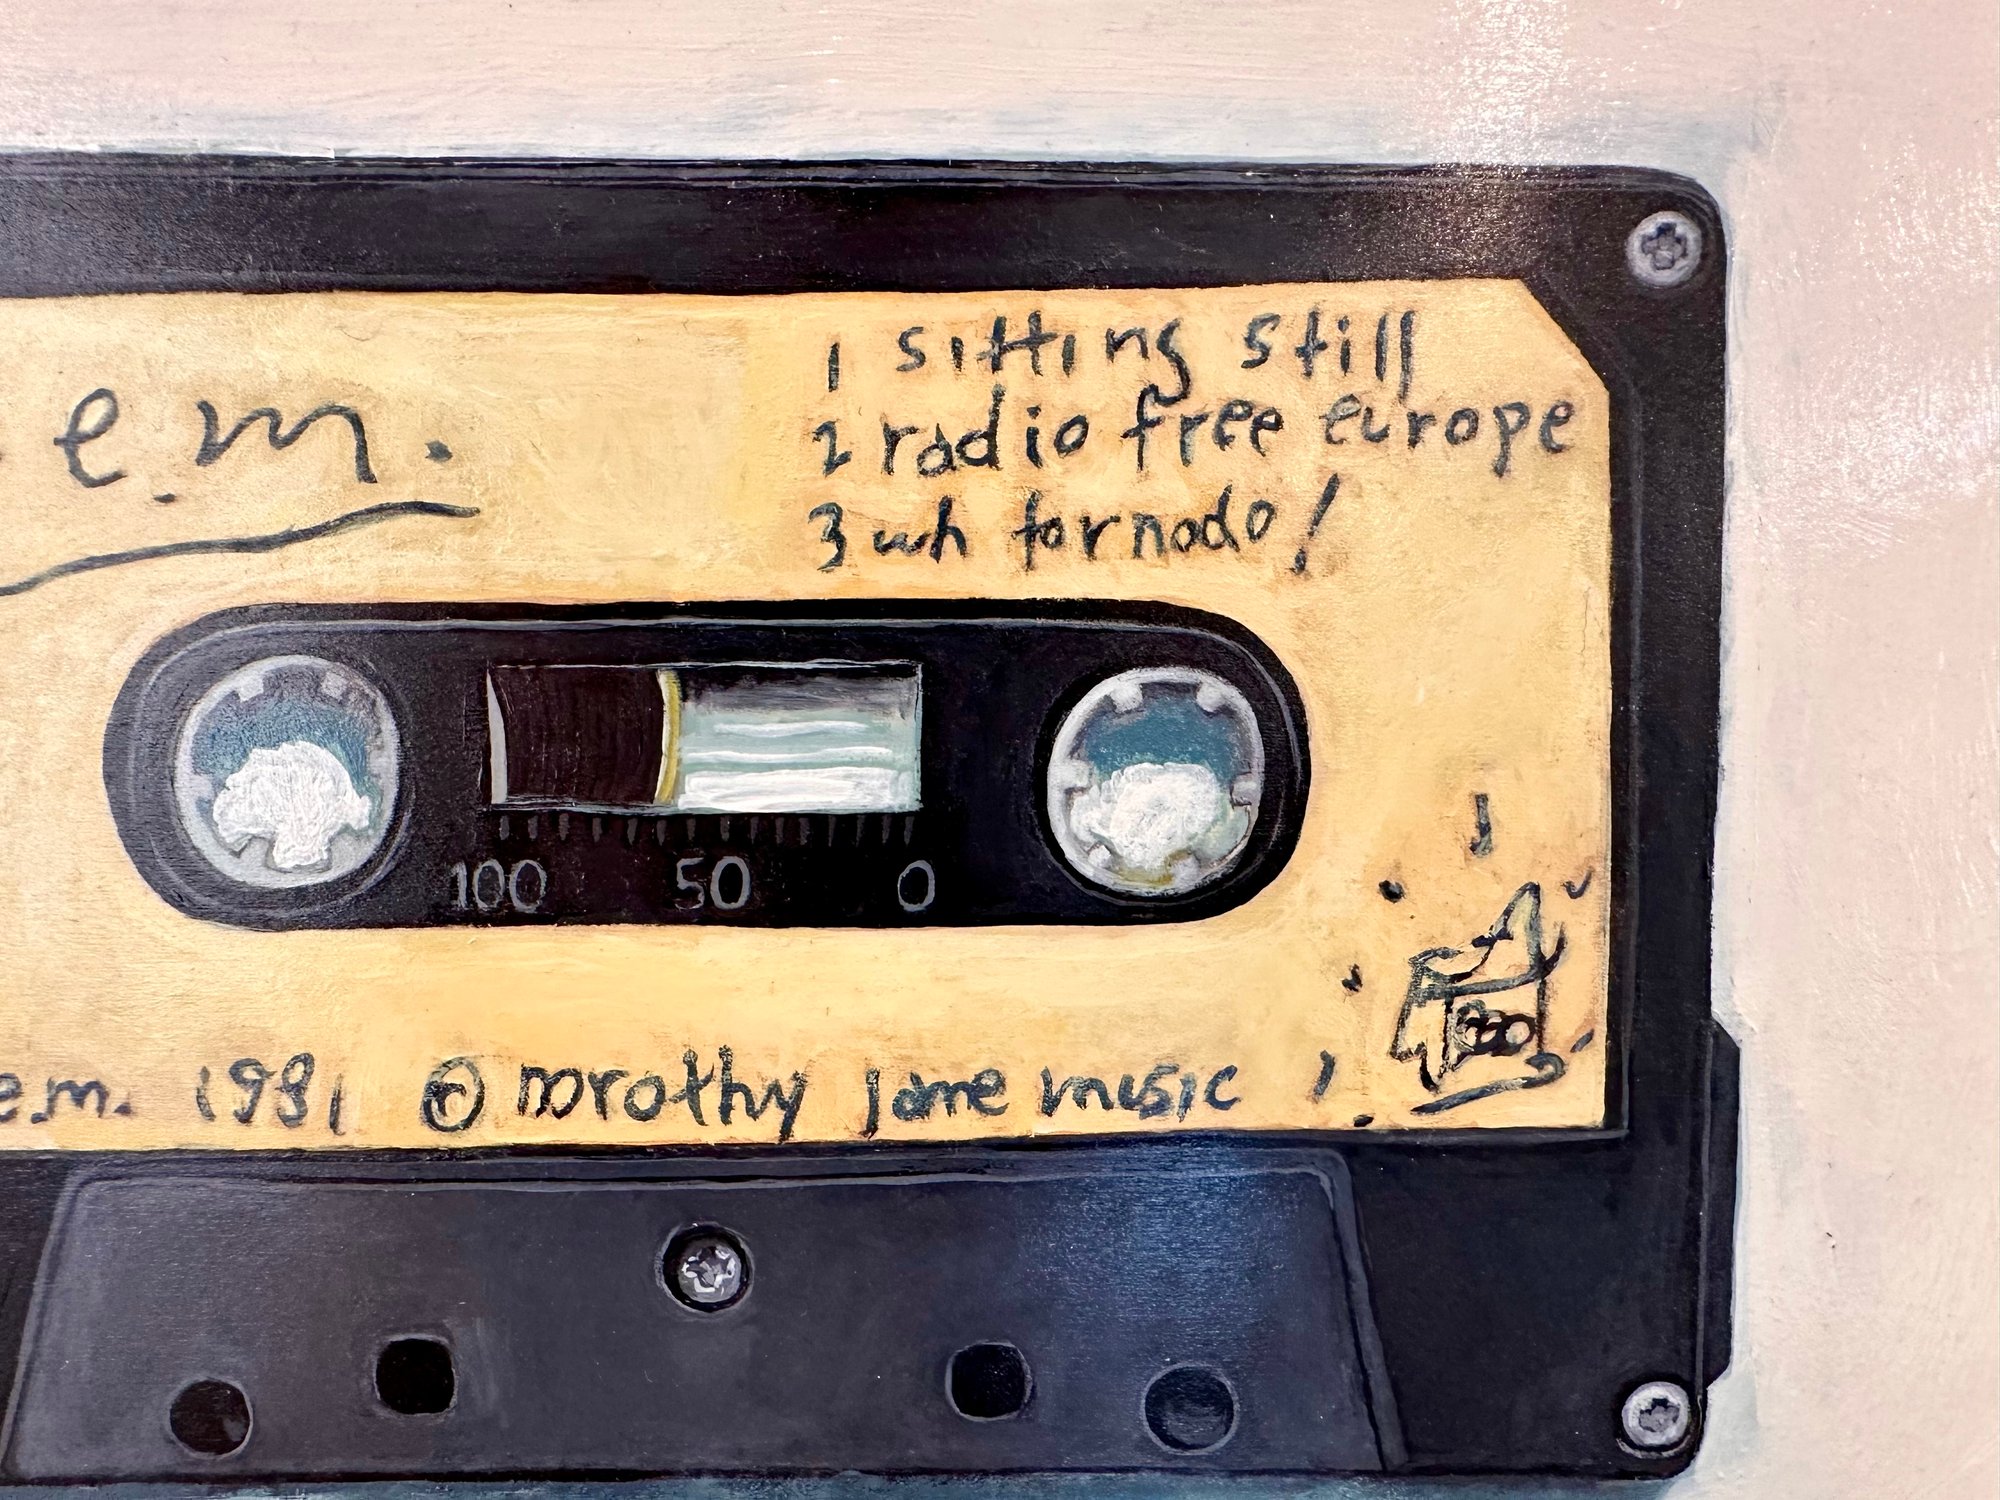 . e. m.
1 sitting still
2 radio free europe
3 wh tornado!
100 50 0
e.m. 1981 © Dorothy Jane music